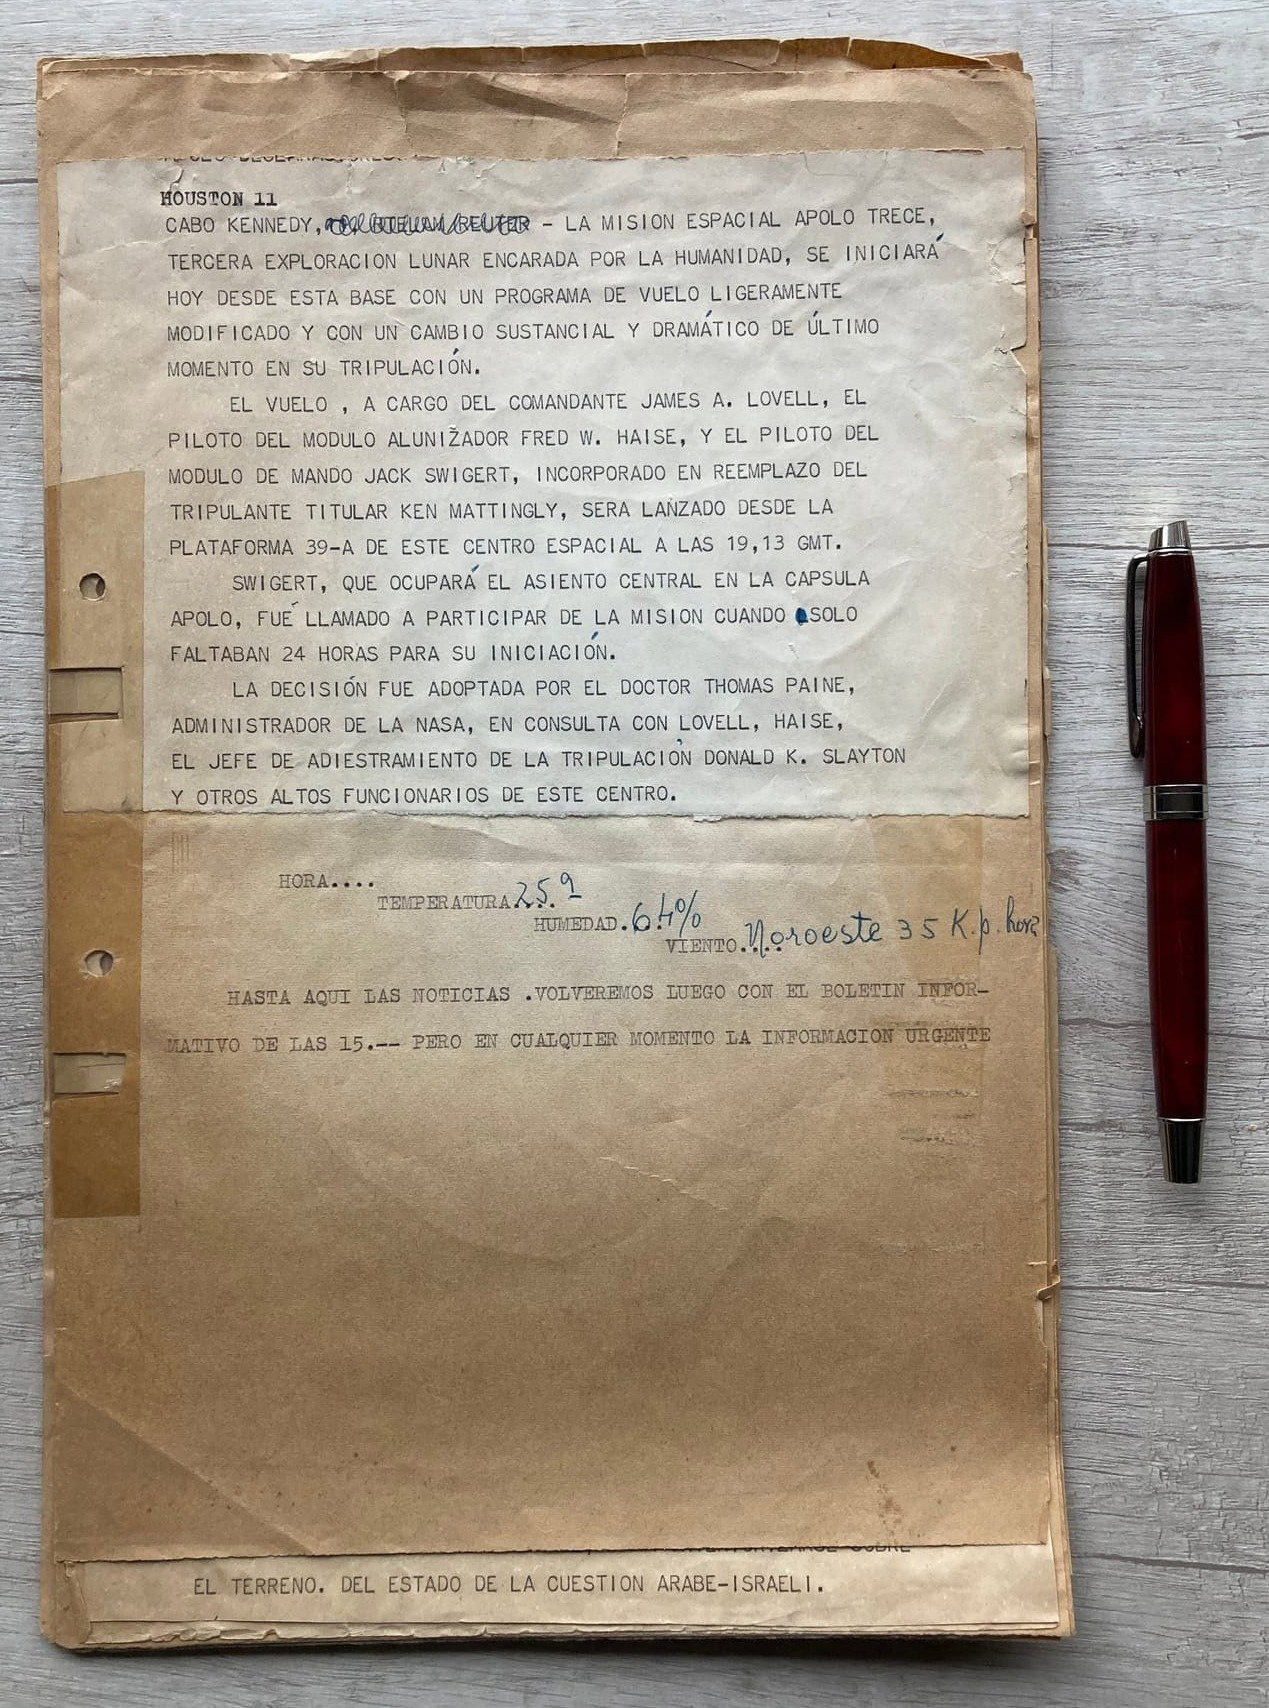 HOUSTON 11
CABO KENNEDY, REUTER - LA MISION ESPACIAL APOLO TRECE,
TERCERA EXPLORACION LUNAR ENCARADA POR LA HUMANIDAD, SE INICIARÁ
HOY DESDE ESTA BASE CON UN PROGRAMA DE VUELO LIGERAMENTE
MODIFICADO Y CON UN CAMBIO SUSTANCIAL Y DRAMÁTICO DE ÚLTIMO
MOMENTO EN SU TRIPULACIÓN.
EL VUELO , A CARGO DEL COMANDANTE JAMES A. LOVELL, EL
PILOTO DEL MODULO ALUNIZADOR FRED W. HAISE, Y EL PILOTO DEL
MODULO DE MANDO JACK SWIGERT, INCORPORADO EN REEMPLAZO DEL
TRIPULANTE TITULAR KEN MATTINGLY, SERA LANZADO DESDE LA
PLATAFORMA 39-A DE ESTE CENTRO ESPACIAL A LAS 19,13 GMT.
SWIGERT, QUE OCUPARÁ EL ASIENTO CENTRAL EN LA CAPSULA
APOLO, FUÉ LLAMADO A PARTICIPAR DE LA MISION CUANDO SOLO
FALTABAN 24 HORAS PARA SU INICIACIÓN.
LA DECISIÓN FUE ADOPTADA POR EL DOCTOR THOMAS PAINE,
ADMINISTRADOR DE LA NASA, EN CONSULTA CON LOVELL, HAISE,
EL JEFE DE ADIESTRAMIENTO DE LA TRIPULACIÓN DONALD K. SLAYTON
Y OTROS ALTOS FUNCIONARIOS DE ESTE CENTRO.
HORA....
TEMPERATURA... 25.º
HUMEDAD... 64%
VIENTO.... Noroeste 35 K.p. hora
HASTA AQUI LAS NOTICIAS .VOLVEREMOS LUEGO CON EL BOLETIN INFOR-
MATIVO DE LAS 15.-- PERO EN CUALQUIER MOMENTO LA INFORMACION URGENTE
EL TERRENO. DEL ESTADO DE LA CUESTION ARABE-ISRAELI.